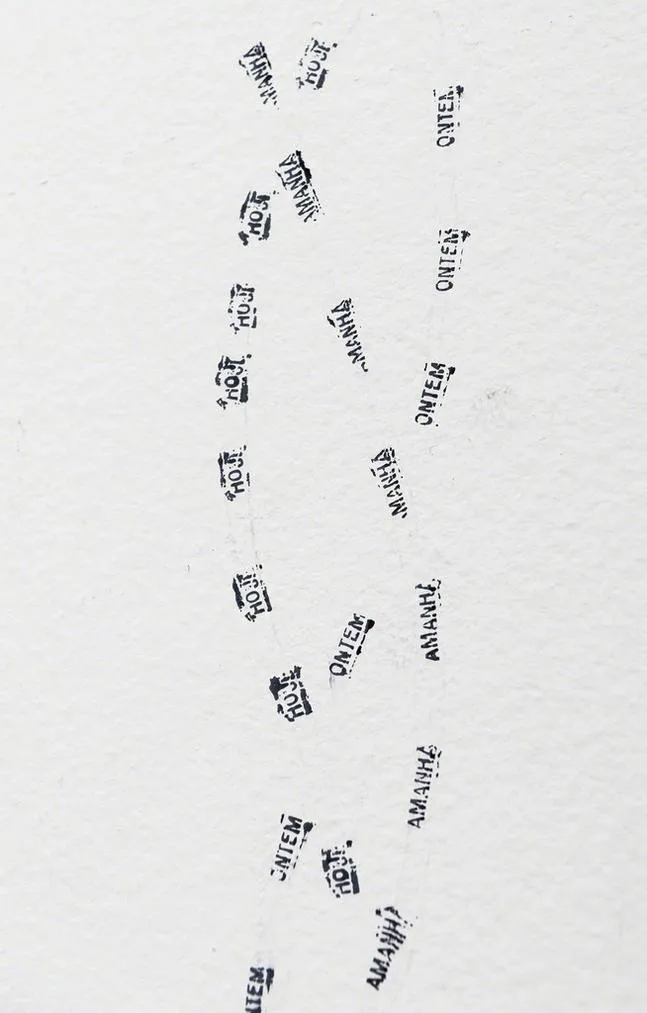 AMANHÃ
HOJE
ONTEM
AMANHÃ
HOJE
ONTEM
HOJE
AMANHÃ
HOJE
ONTEM
HOJE
AMANHÃ
HOJE
AMANHÃ
ONTEM
HOJE
AMANHÃ
ONTEM
HOJE
AMANHÃ
NTEM